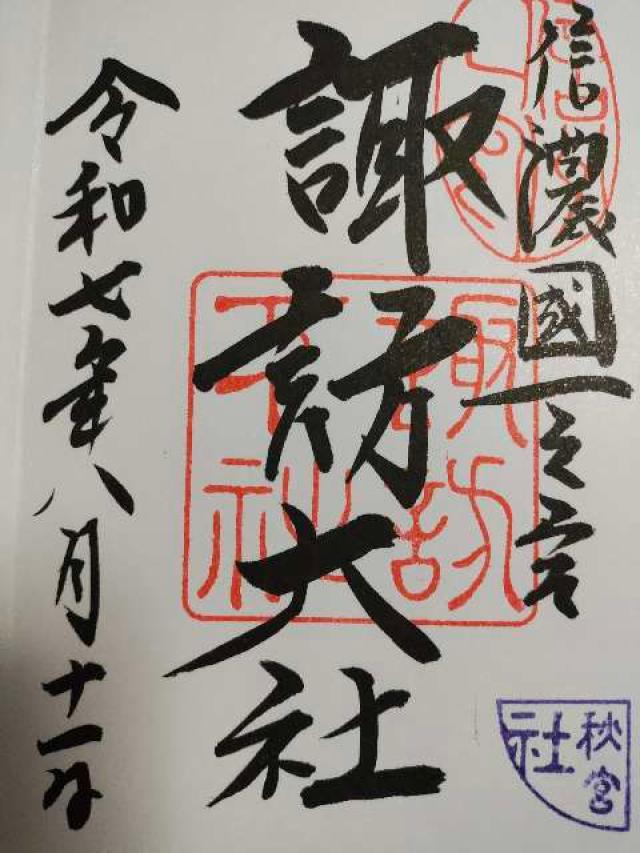 信濃國一之宮
諏訪大社
令和七年八月十一日
諏訪大社
秋宮
社